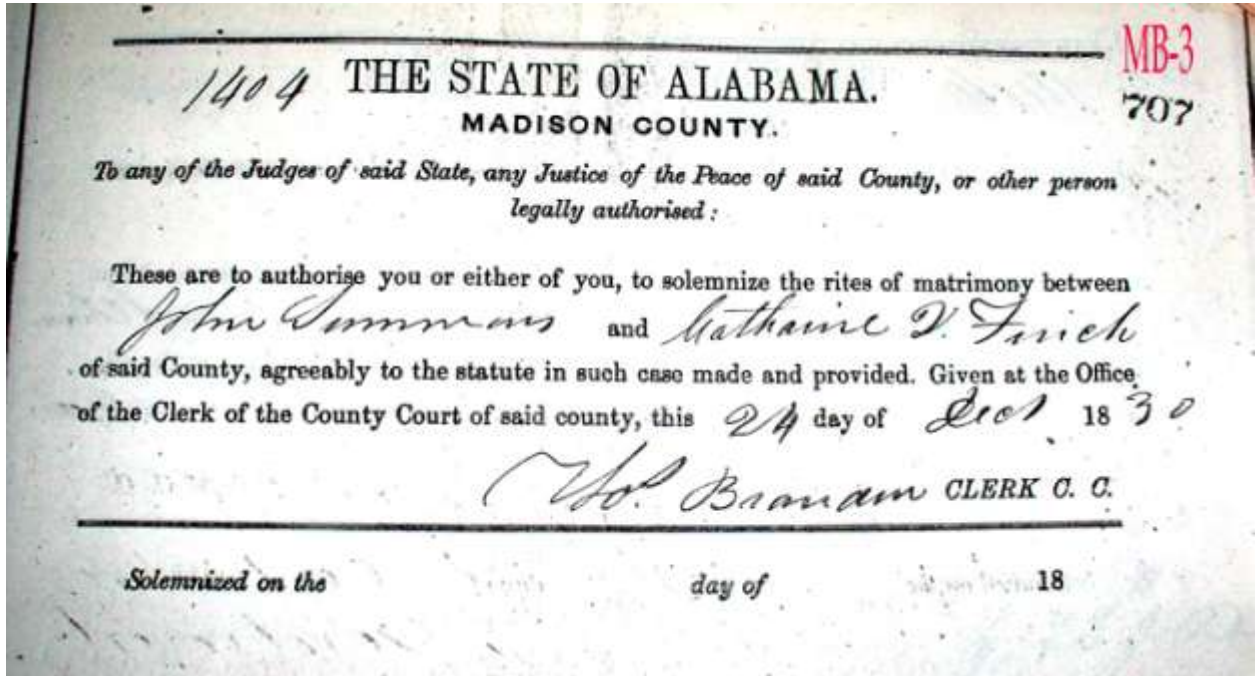 MB-3
1404 THE STATE OF ALABAMA.
707
MADISON COUNTY.
To any of the Judges of said State, any Justice of the Peace of said County, or other person
legally authorised:
These are to authorise you or either of you, to solemnize the rites of matrimony between
John Summons and Catharine V. Finch
of said County, agreeably to the statute in such case made and provided. Given at the Office
of the Clerk of the County Court of said county, this 24 day of 1830
Thos. Brandon CLERK C. C.
Solemnized on the day of 18